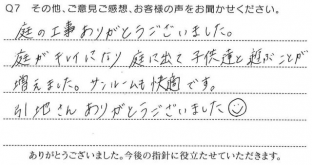 Q7 その他、ご意見ご感想、お客様の声をお聞かせください。
庭の工事ありがとうございました。
庭がキレイになり 庭に出て子供達と遊ぶことが
増えました。サンルームも快適です。
引地さんありがとうございました
ありがとうございました。今後の指針に役立たせていただきます。